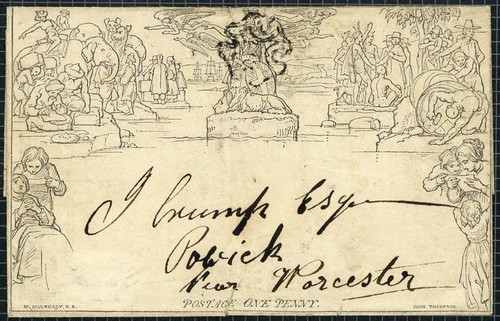 J Crump Esq
Powick
Near Worcester
POSTAGE ONE PENNY.
W. MULREADY, R.A.
JOHN THOMPSON.